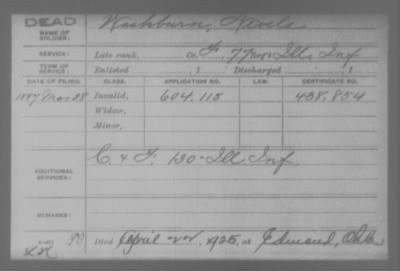 DEAD
NAME OF SOLDIER: Washburn,
SERVICE: Late rank, Co. F, 77 Ills Inf
TERM OF SERVICE: Enlisted , 1 Discharged , 1
DATE OF FILING. CLASS. APPLICATION NO. LAW. CERTIFICATE NO.
1887 Mar 28 Invalid, 604.115 438.854
Widow,
Minor,
ADDITIONAL SERVICES: C. & F. 130 Ill Inf
REMARKS:
Died April 22, 1925, at Edmond, Okla